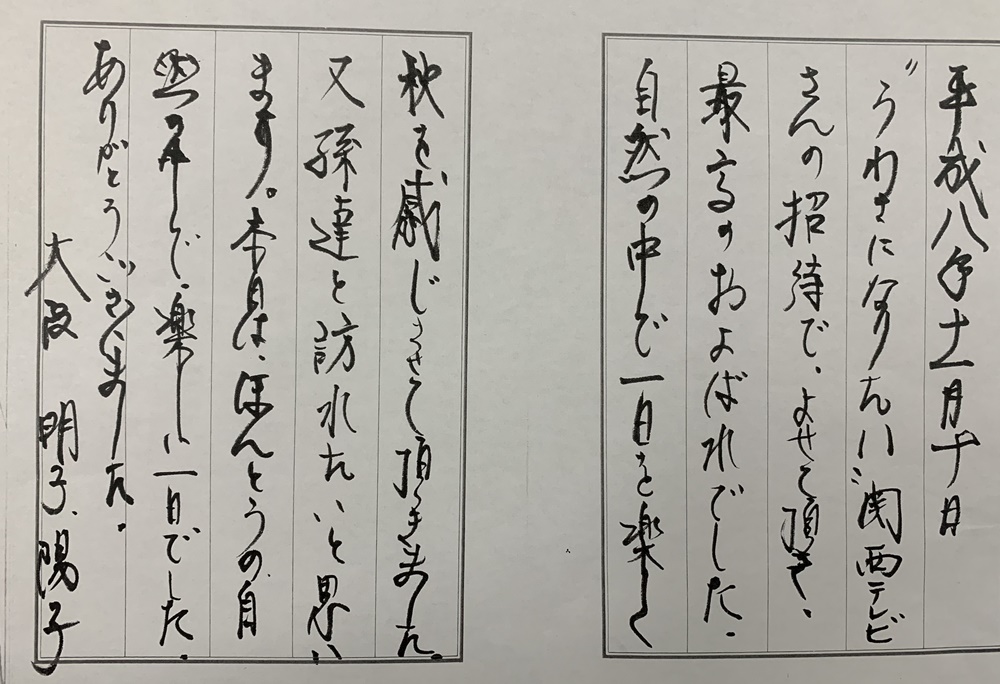 平成八年十一月十日
“うわさになりたい”関西テレビ
さんの招待で、よせて頂き、
最高のおよばれでした。
自然の中で一日を楽しく
秋を感じさせて頂きました。
又孫達と訪れたいと思い
ます。本日は、ほんとうの自
然の中で、楽しい一日でした。
ありがとうございました。
大阪 明子、陽子